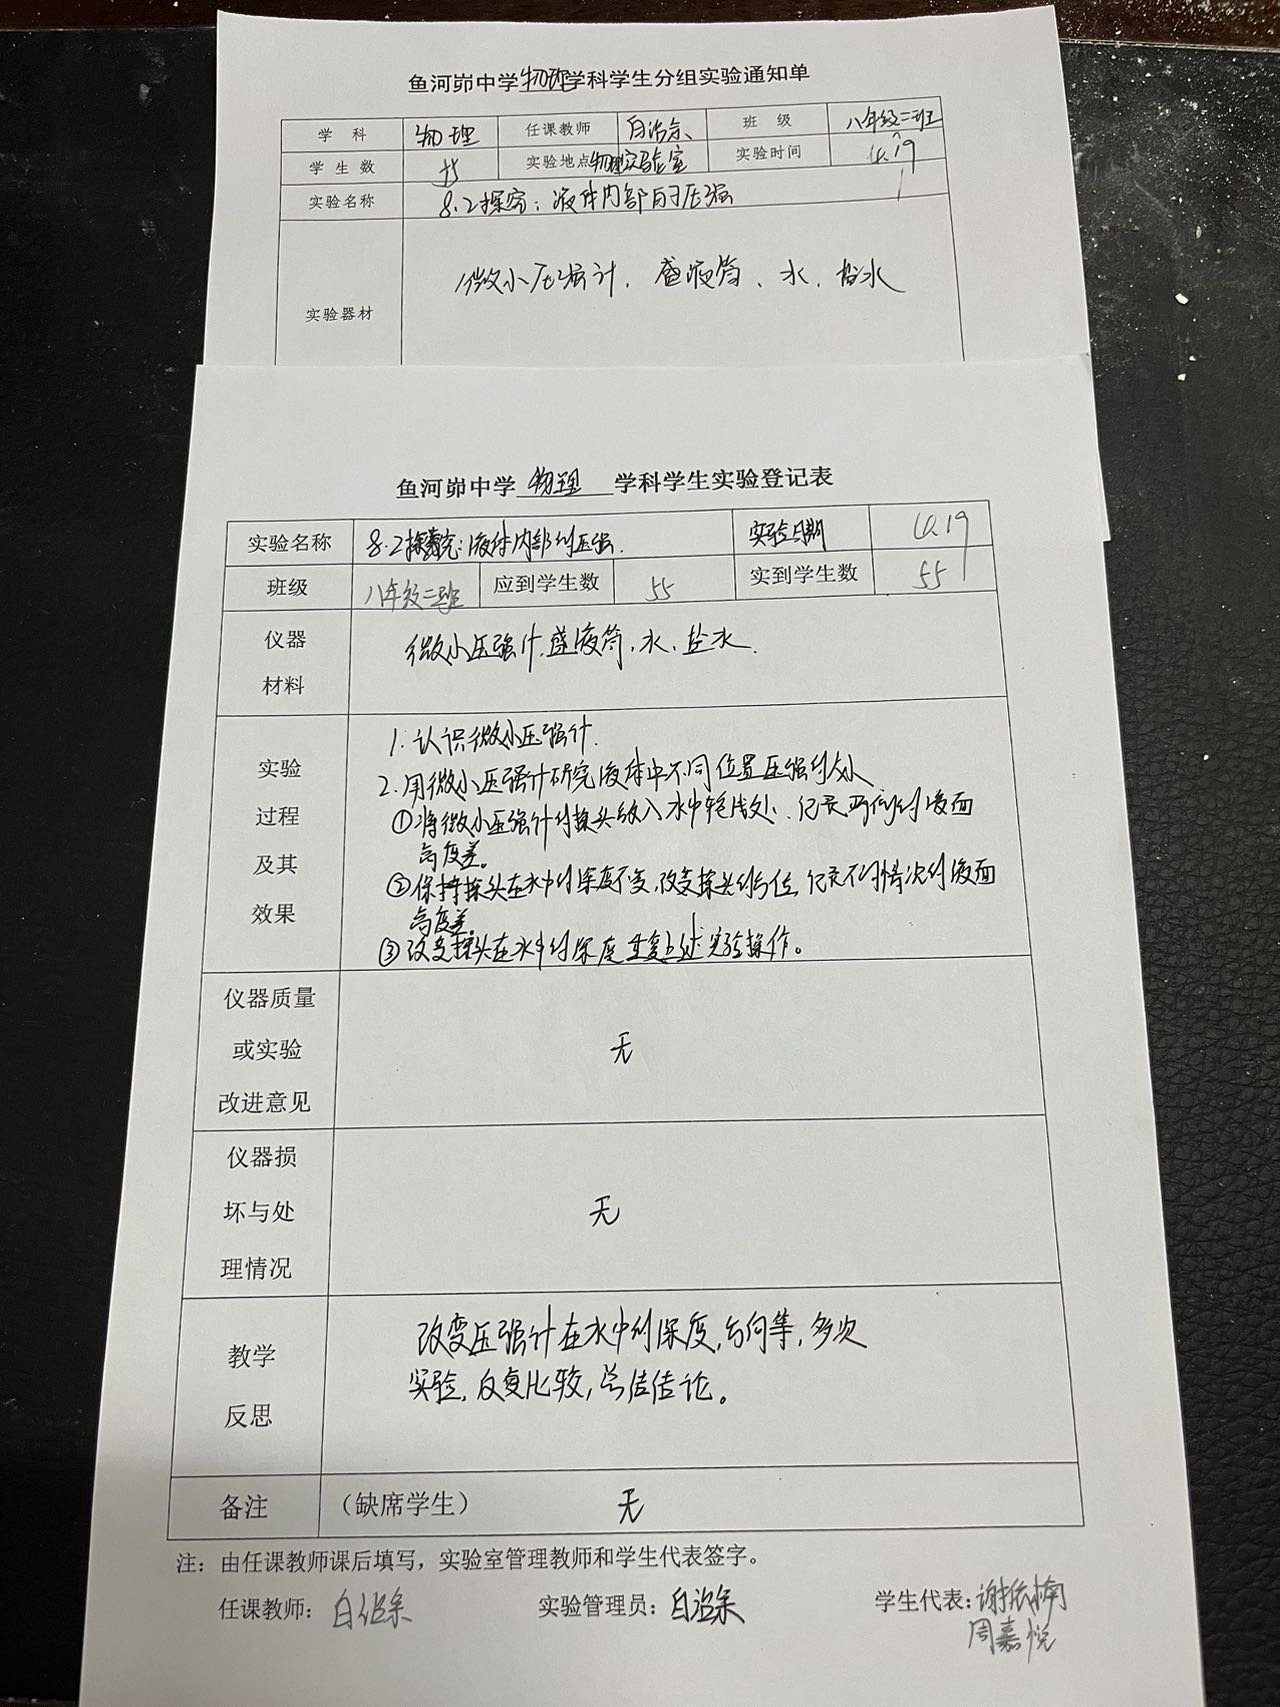 鱼河峁中学物理学科学生分组实验通知单
学 科 物理 任课教师 班 级 八年级二班
学 生 数 55 实验地点 物理实验室 实验时间 4.19
实验名称 8.2探究：液体内部的压强
实验器材 微小压强计、盛液筒、水、盐水
鱼河峁中学 物理 学科学生实验登记表
实验名称 8.2探究：液体内部的压强. 实验日期 4.19
班级 八年级二班 应到学生数 55 实到学生数 55
仪器
材料
微小压强计、盛液筒、水、盐水.
实验
过程
及其
效果
1. 认识微小压强计.
2. 用微小压强计研究液体中不同位置压强的大小
①将微小压强计的探头放入水中较浅处、记录两侧的液面
高度差。
②保持探头在水中的深度不变,改变探头的方位,记录不同情况的液面
高度差.
③改变探头在水中的深度重复上述实验操作。
仪器质量
或实验
改进意见
无
仪器损
坏与处
理情况
无
教学
反思
改变压强计在水中的深度,方向等,多次
实验,反复比较,总结结论。
备注 （缺席学生） 无
注：由任课教师课后填写，实验室管理教师和学生代表签字。
任课教师： 实验管理员： 学生代表：
周嘉悦